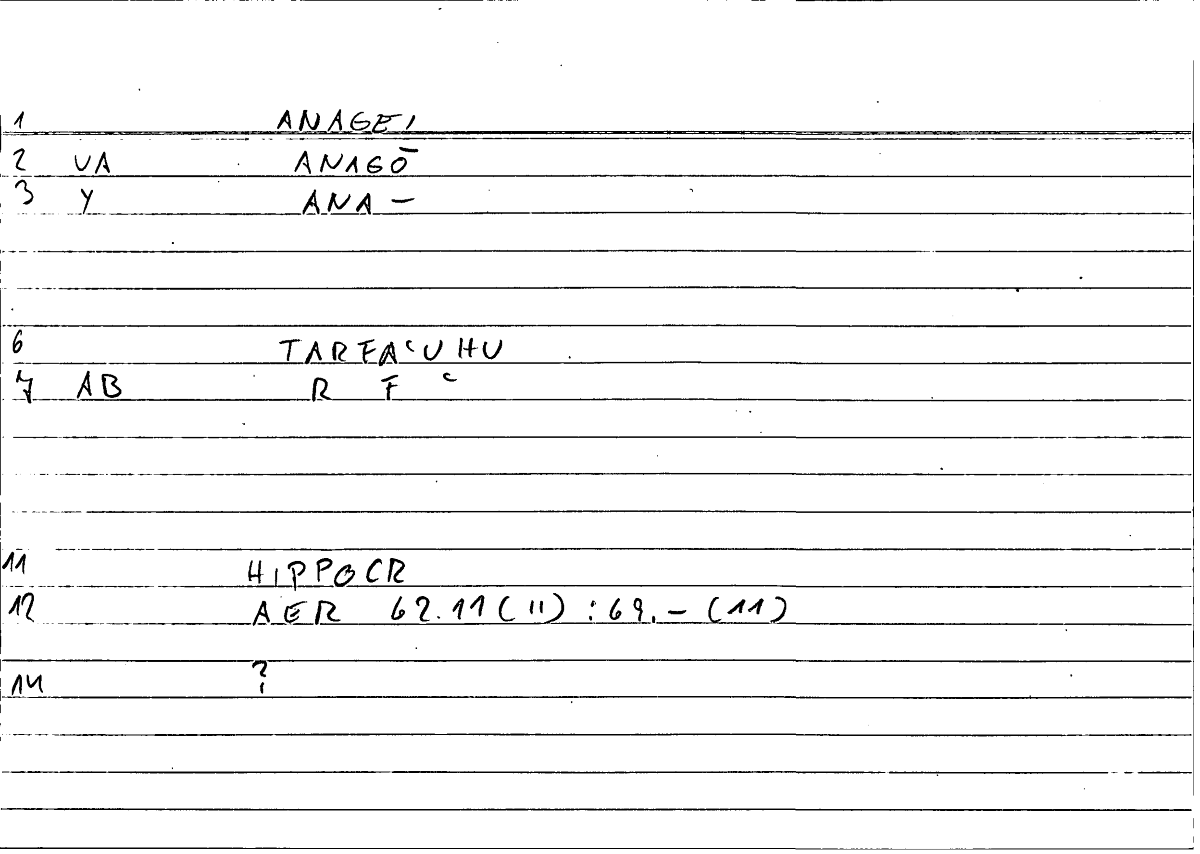 1 ANAGEI
2 VA ANAGŌ
3 Y ANA –
6 TARFAʿU HU
7 AB R F ʿ
11 HIPPOCR
12 AER 62.11(11):69.–(11)
14 ?